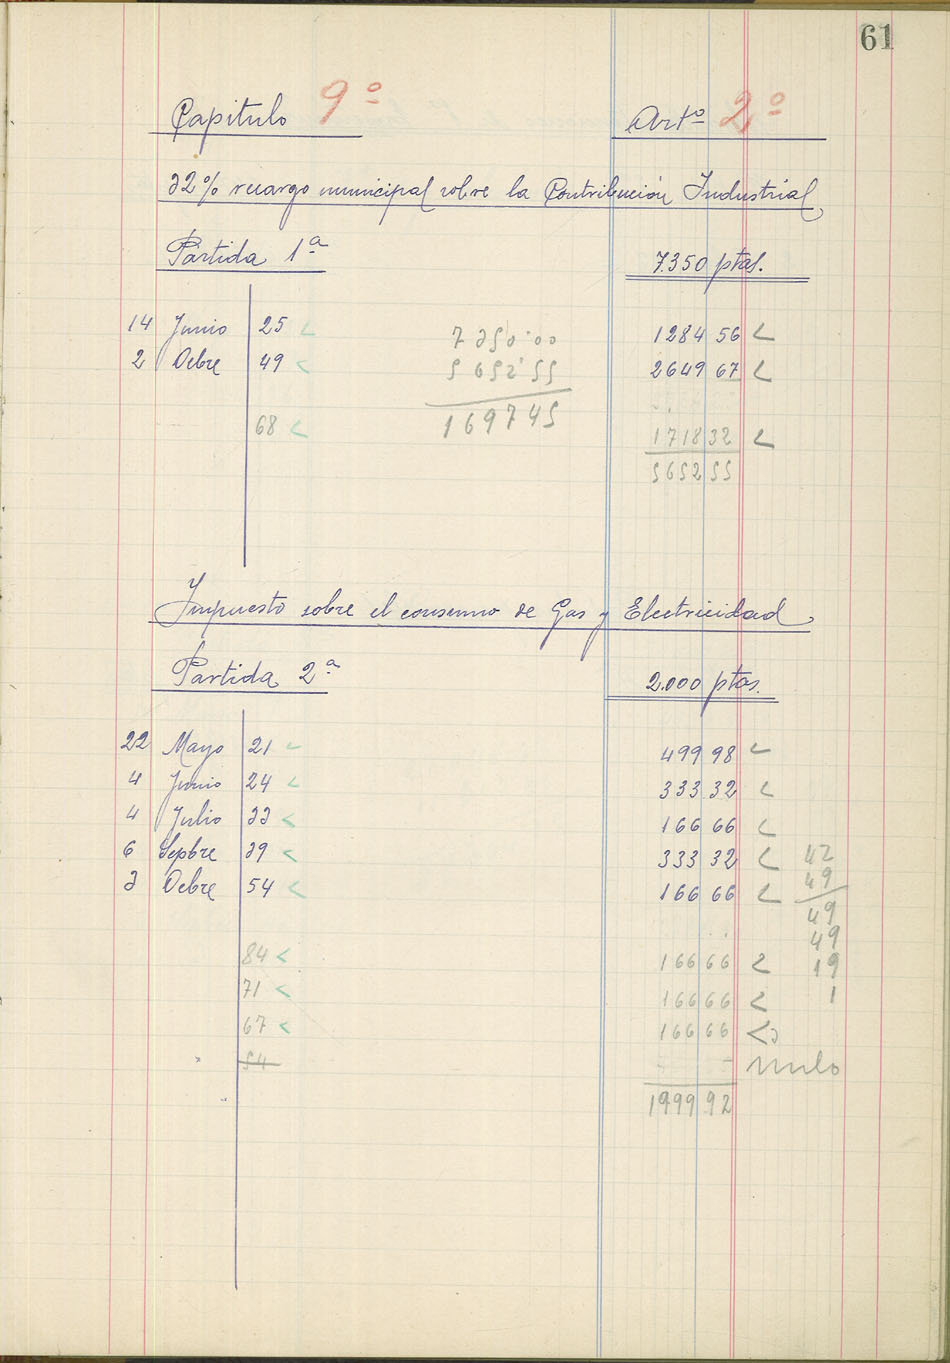 61
Capitulo 9º Artº 2º
32% recargo municipal sobre la Contribución Industrial
Partida 1ª 7.350 ptas.
14 Junio 25 7350'00 1284 56
2 Ocbre 49 5652'55 2649 67
68 169745 1718 32
5652 55
Impuesto sobre el consumo de Gas y Electricidad
Partida 2ª 2.000 ptas.
22 Mayo 21 499 98
4 Junio 24 333 32
4 Julio 33 166 66
6 Sepbre 39 333 32 42
3 Ocbre 54 166 66 49
49
49
84 166 66 19
71 166 66 1
67 166 66
54 nulo
1999 92